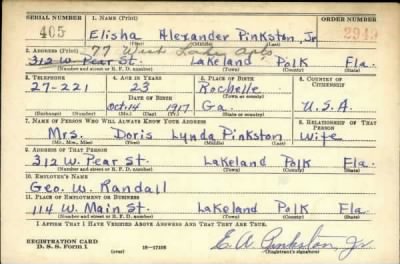 SERIAL NUMBER 1. NAME (Print) ORDER NUMBER
405 Elisha Alexander Pinkston, Jr 2949
(First) (Middle) (Last)
77 West Lake Apts
2. ADDRESS (Print)
312 W. Pear St. Lakeland Polk Fla.
(Number and street or R. F. D. number) (Town) (County) (State)
3. TELEPHONE 4. AGE IN YEARS 5. PLACE OF BIRTH 6. COUNTRY OF CITIZENSHIP
27-221 23 Rochelle
DATE OF BIRTH (Town or county)
Oct. 14 1917 Ga. U.S.A.
(Exchange) (Number) (Mo.) (Day) (Yr.) (State or country)
7. NAME OF PERSON WHO WILL ALWAYS KNOW YOUR ADDRESS 8. RELATIONSHIP OF THAT PERSON
Mrs. Doris Lynda Pinkston Wife
(Mr., Mrs., Miss) (First) (Middle) (Last)
9. ADDRESS OF THAT PERSON
312 W. Pear St. Lakeland Polk Fla.
(Number and street or R. F. D. number) (Town) (County) (State)
10. EMPLOYER'S NAME
Geo. W. Randall
11. PLACE OF EMPLOYMENT OR BUSINESS
114 W. Main St. Lakeland Polk Fla.
(Number and street or R. F. D. number) (Town) (County) (State)
I AFFIRM THAT I HAVE VERIFIED ABOVE ANSWERS AND THAT THEY ARE TRUE.
REGISTRATION CARD
D. S. S. Form 1 (over) 16-17105 E. A. Pinkston, Jr.
(Registrant's signature)